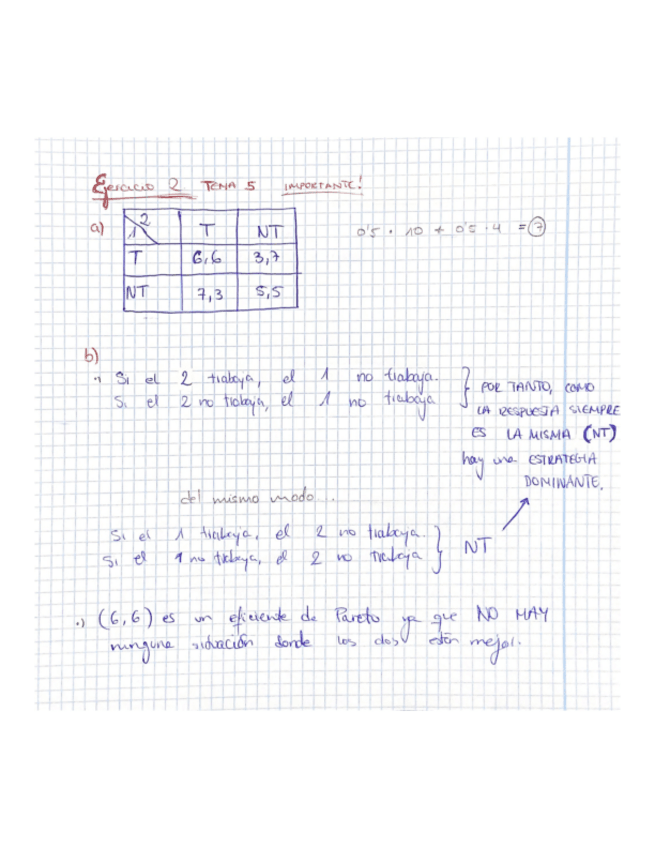 Ejercicio 2 TEMA 5 IMPORTANTE!
a) 1 2 T NT 0'5 · 10 + 0'5 · 4 = 7
T 6,6 3,7
NT 7,3 5,5
b)
·) Si el 2 trabaja, el 1 no trabaja.
Si el 2 no trabaja, el 1 no trabaja
POR TANTO, COMO
LA RESPUESTA SIEMPRE
ES LA MISMA (NT)
hay una ESTRATEGIA
DOMINANTE.
del mismo modo...
Si el 1 trabaja, el 2 no trabaja.
Si el 1 no trabaja, el 2 no trabaja
NT
·) (6,6) es un eficiente de Pareto ya que NO HAY
ninguna situación donde los dos estén mejor.